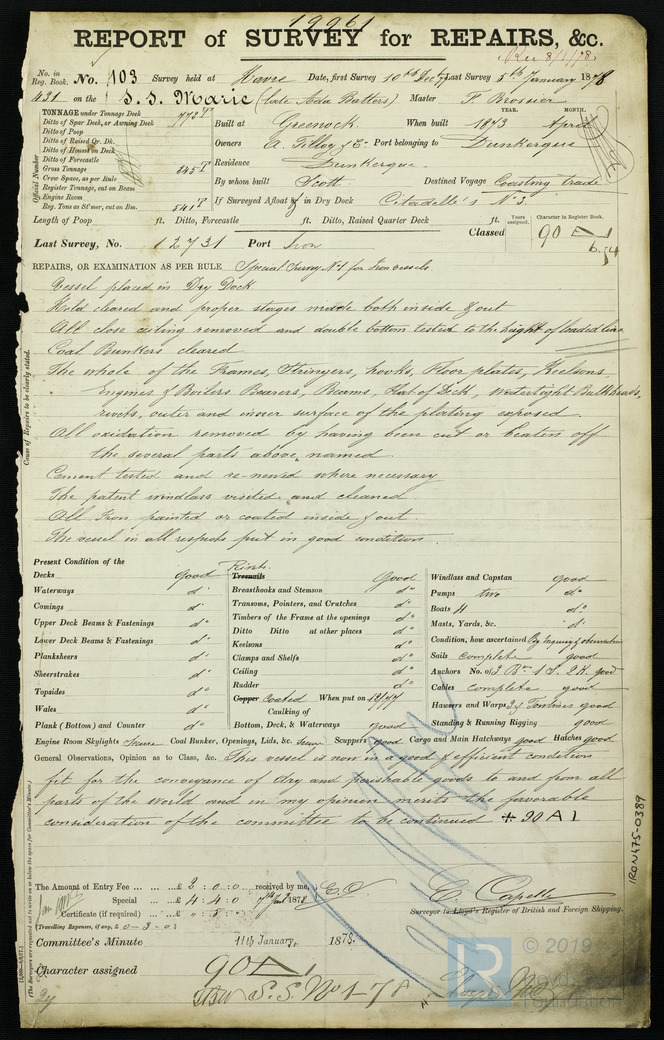 19961
REPORT of SURVEY for REPAIRS, &c.
Rec 8/1/78
No. in Reg. Book. No. 103 Survey held at Havre Date, first Survey 10th Dec 77 Last Survey 5th January 1878
431 on the S.S. Marie (late Ada Batters) Master F. Brossier
TONNAGE under Tonnage Deck 772
Ditto of Spar Deck, or Awning Deck
Ditto of Poop
Ditto of Raised Qr. Dk.
Ditto of Houses on Deck
Ditto of Forecastle
Gross Tonnage 845
Crew Space, as per Rule
Register Tonnage, cut on Beam
Engine Room
Reg. Tons as St'mer, cut on Bm. 541
Official Number
Built at Greenock. When built 1873 April
YEAR. MONTH.
Owners Port belonging to Dunkerque
Residence Dunkerque.
By whom built Scott. Destined Voyage Coasting Trade
If Surveyed Afloat or in Dry Dock Citadelle's No 3.
Length of Poop ft. Ditto, Forecastle ft. Ditto, Raised Quarter Deck ft.
Years assigned. Character in Register Book.
Classed 90 A
6.74
Last Survey, No. 12731 Port Iron
REPAIRS, OR EXAMINATION AS PER RULE Special Survey No 1 for Iron vessels
Vessel placed in Dry Dock
Hold cleared and proper stages made both inside & out
All close ceiling removed and double bottom tested to the hight of loaded line
Coal Bunkers cleared
The whole of the Frames, Stringers, hooks, Floor plates, Keelsons
Engines & Boilers Bearers, Beams, Flat of Deck, watertight Bulkheads,
rivets, outer and inner surface of the plating exposed.
All oxidation removed by having been cut or beaten off
the several parts above named
Cement tested and re-newed where necessary
The patent windlass visited and cleaned
All Iron painted or coated inside & out
The vessel in all respects put in good condition
Cause of Repairs to be clearly stated.
Present Condition of the
Decks good
Waterways do
Comings do
Upper Deck Beams & Fastenings do
Lower Deck Beams & Fastenings do
Planksheers do
Sheerstrakes do
Topsides do
Wales do
Plank (Bottom) and Counter do
Rivets
Treenails Good
Breasthooks and Stemson do
Transoms, Pointers, and Crutches do
Timbers of the Frame at the openings do
Ditto Ditto at other places do
Keelsons do
Clamps and Shelfs do
Ceiling do
Rudder do
Copper coated When put on 12/77
Caulking of
Bottom, Deck, & Waterways good
Windlass and Capstan good
Pumps two do
Boats 4 do
Masts, Yards, &c. do
Condition, how ascertained By Inquiry & observation
Sails complete good
Anchors No. of 3 Br. 1 S. 2 K. good
Cables complete good
Hawsers and Warps good
Standing & Running Rigging good
Engine Room Skylights Secure Coal Bunker, Openings, Lids, &c. Secure Scuppers good Cargo and Main Hatchways good Hatches good
General Observations, Opinion as to Class, &c. This vessel is now in a good & efficient condition
fit for the conveyance of dry and perishable goods to and from all
parts of the world and in my opinion merits the favorable
consideration of the committee to be continued 90 A 1
IRON475-0389
The Amount of Entry Fee £ 2 : 0 : 0 received by me,
Special £ 4 : 4 : 0 7th Jany 1878
Certificate (if required) £ " : 5 :
(Travelling Expenses, if any, £ 0-3-0)
E. Capelle
Surveyor to Lloyd's Register of British and Foreign Shipping.
Committee's Minute 11th January, 1878.
Character assigned 90 A
S.S. No 1-78
(The Surveyors are requested not to write on or below the space for Committee's Minute.)
© 2019
Lloyd's Register
Foundation